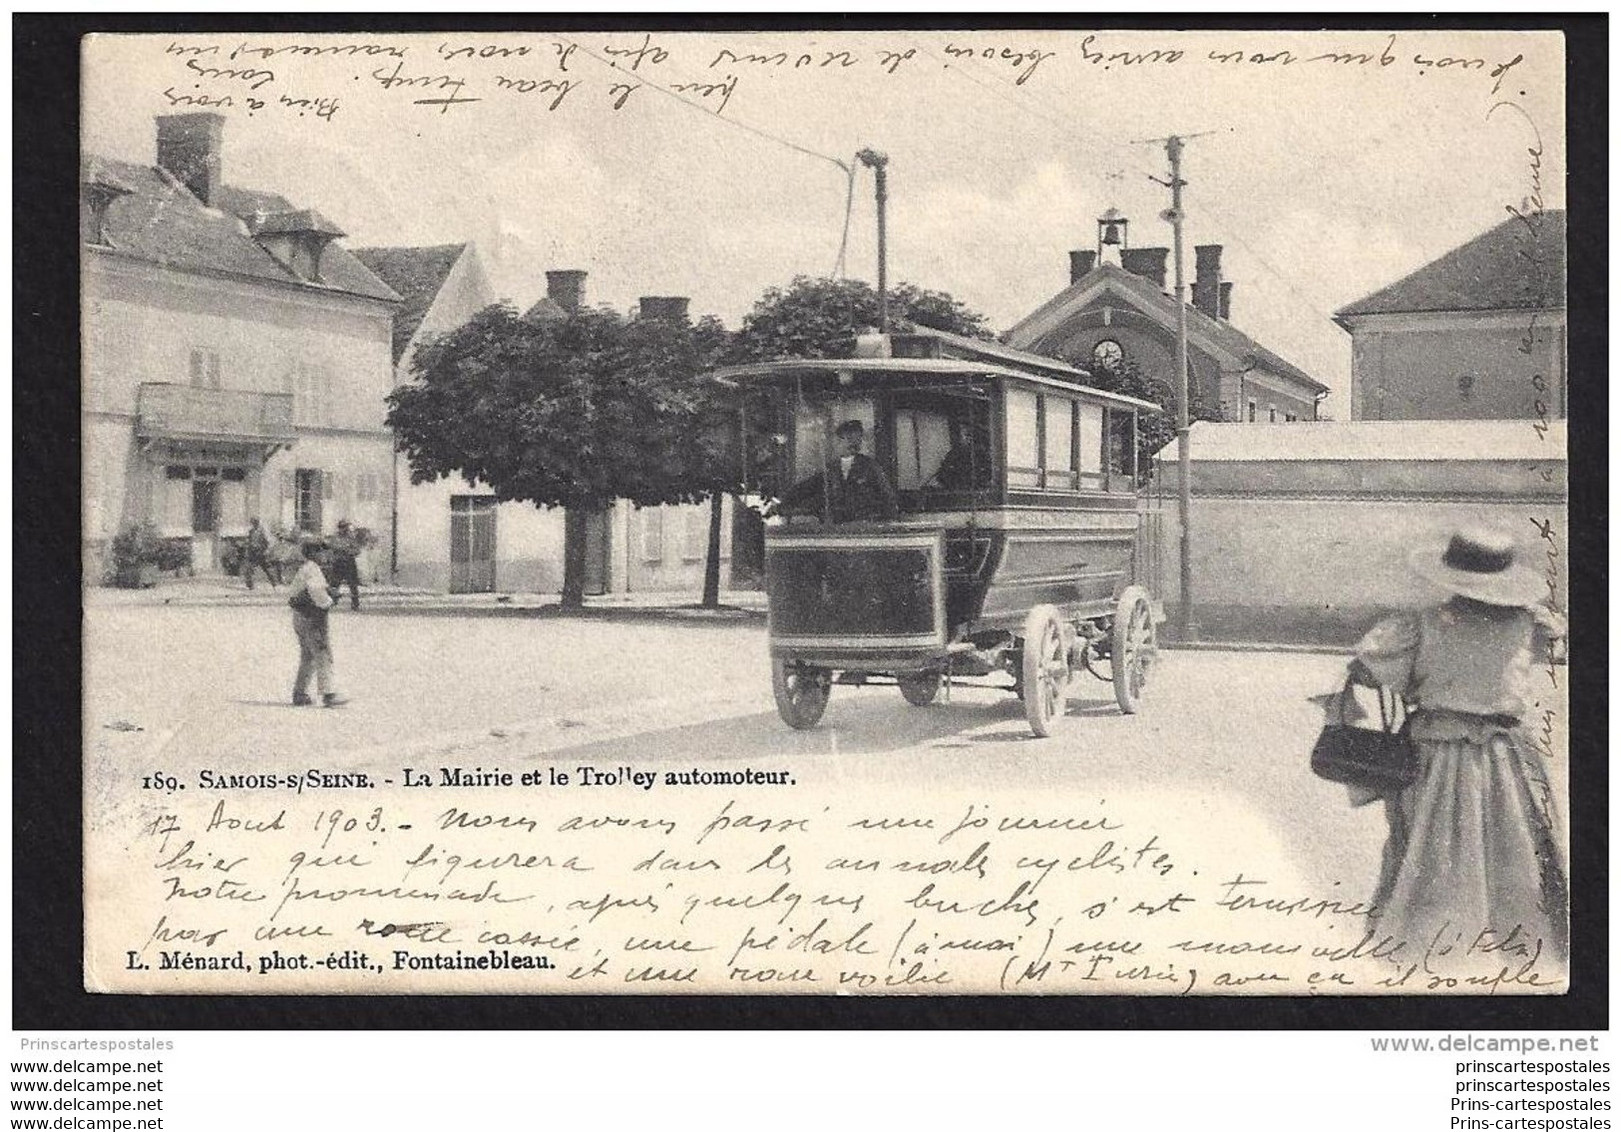 Je vois que vous auriez besoin de revenir afin de nous ramener un
peu le beau temps.
Bien à vous
Louis
189. SAMOIS-S/SEINE. - La Mairie et le Trolley automoteur.
17 Aout 1903. - Nous avons passé une journée
hier qui figurera dans les annales cyclistes.
Notre promenade, après quelques buches, s'est terminée
par une roue cassée, une pédale (à moi) une manivelle (à
L. Ménard, phot.-édit., Fontainebleau.
et une roue voilée (Mr avec ça il souple
à 100 à l'heure).
Prinscartespostales
www.delcampe.net
www.delcampe.net
www.delcampe.net
www.delcampe.net
www.delcampe.net
prinscartespostales
prinscartespostales
Prins-cartespostales
Prins-cartespostales